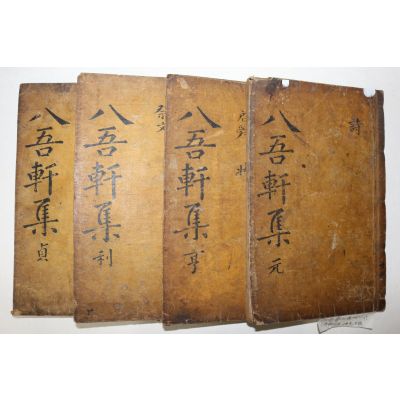 詩
八吾軒集 元
八吾軒集 亨
祭文
八吾軒集 利
八吾軒集 貞